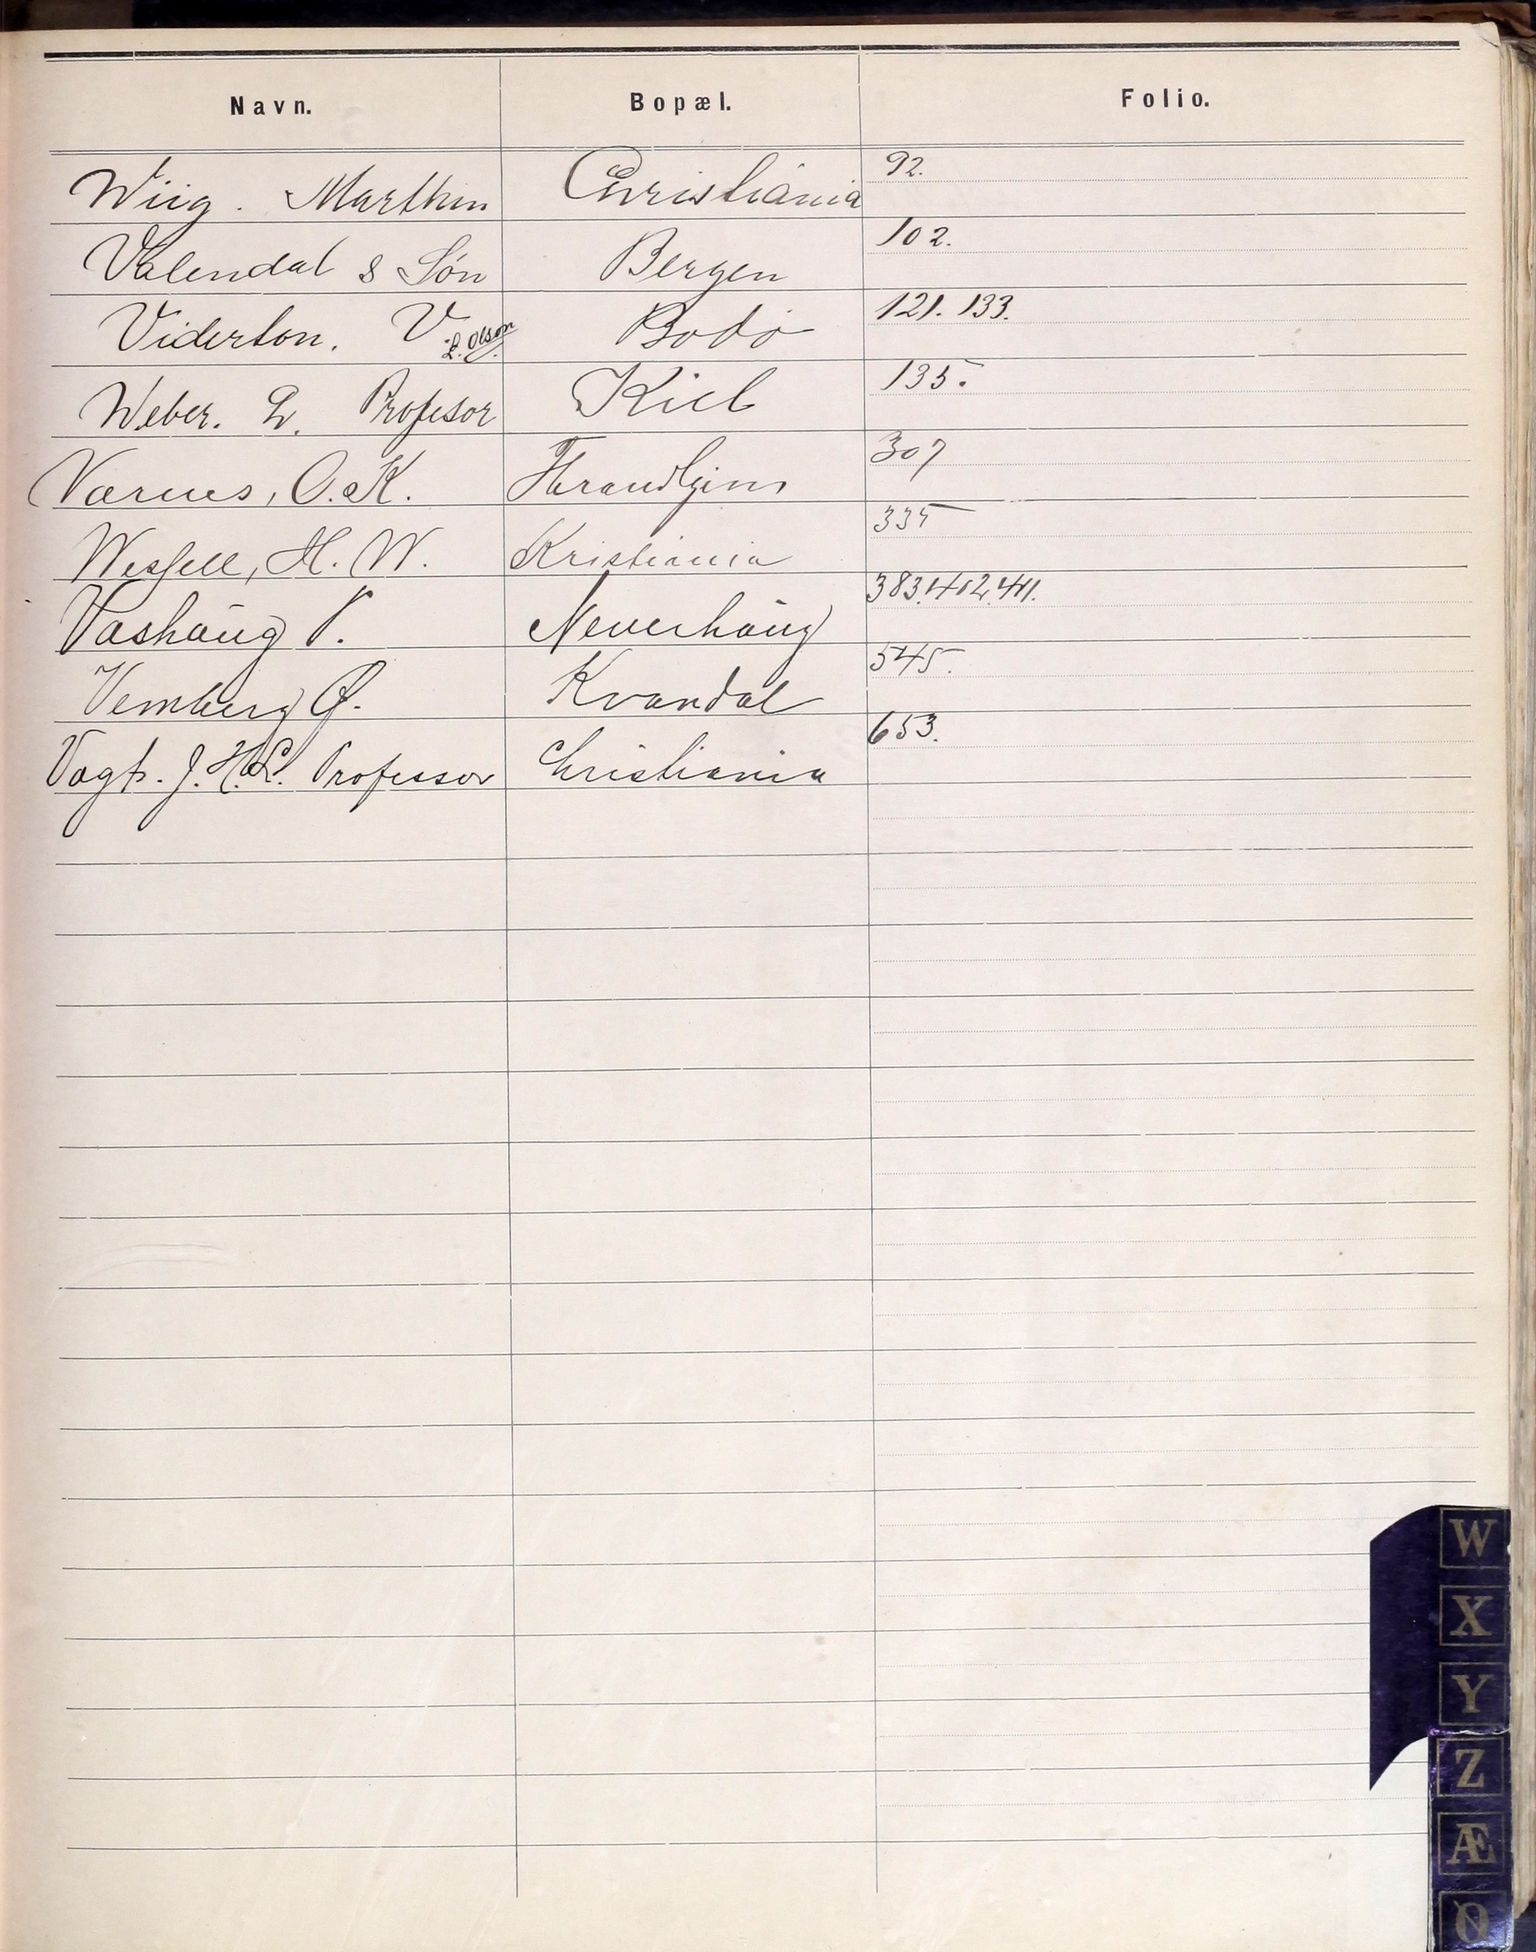 Navn. Bopæl. Folio.
Wiig. Marthin Christiania 92.
Valendal & Søn Bergen 102.
Viderton. V. L. Olson Bodö 121. 133.
Weber. L. Profesor Kiel 135.
Værnes, O. K. Thrandhjem 307
Wessell, H. W. Kristiania 335
Vashaug P. Neverhaug 383. 402. 411.
Vemberg O. Kvandal 545.
Vogt. J. H. L. Professor Christiania 653.
W
X
Y
Z
Æ
Ø